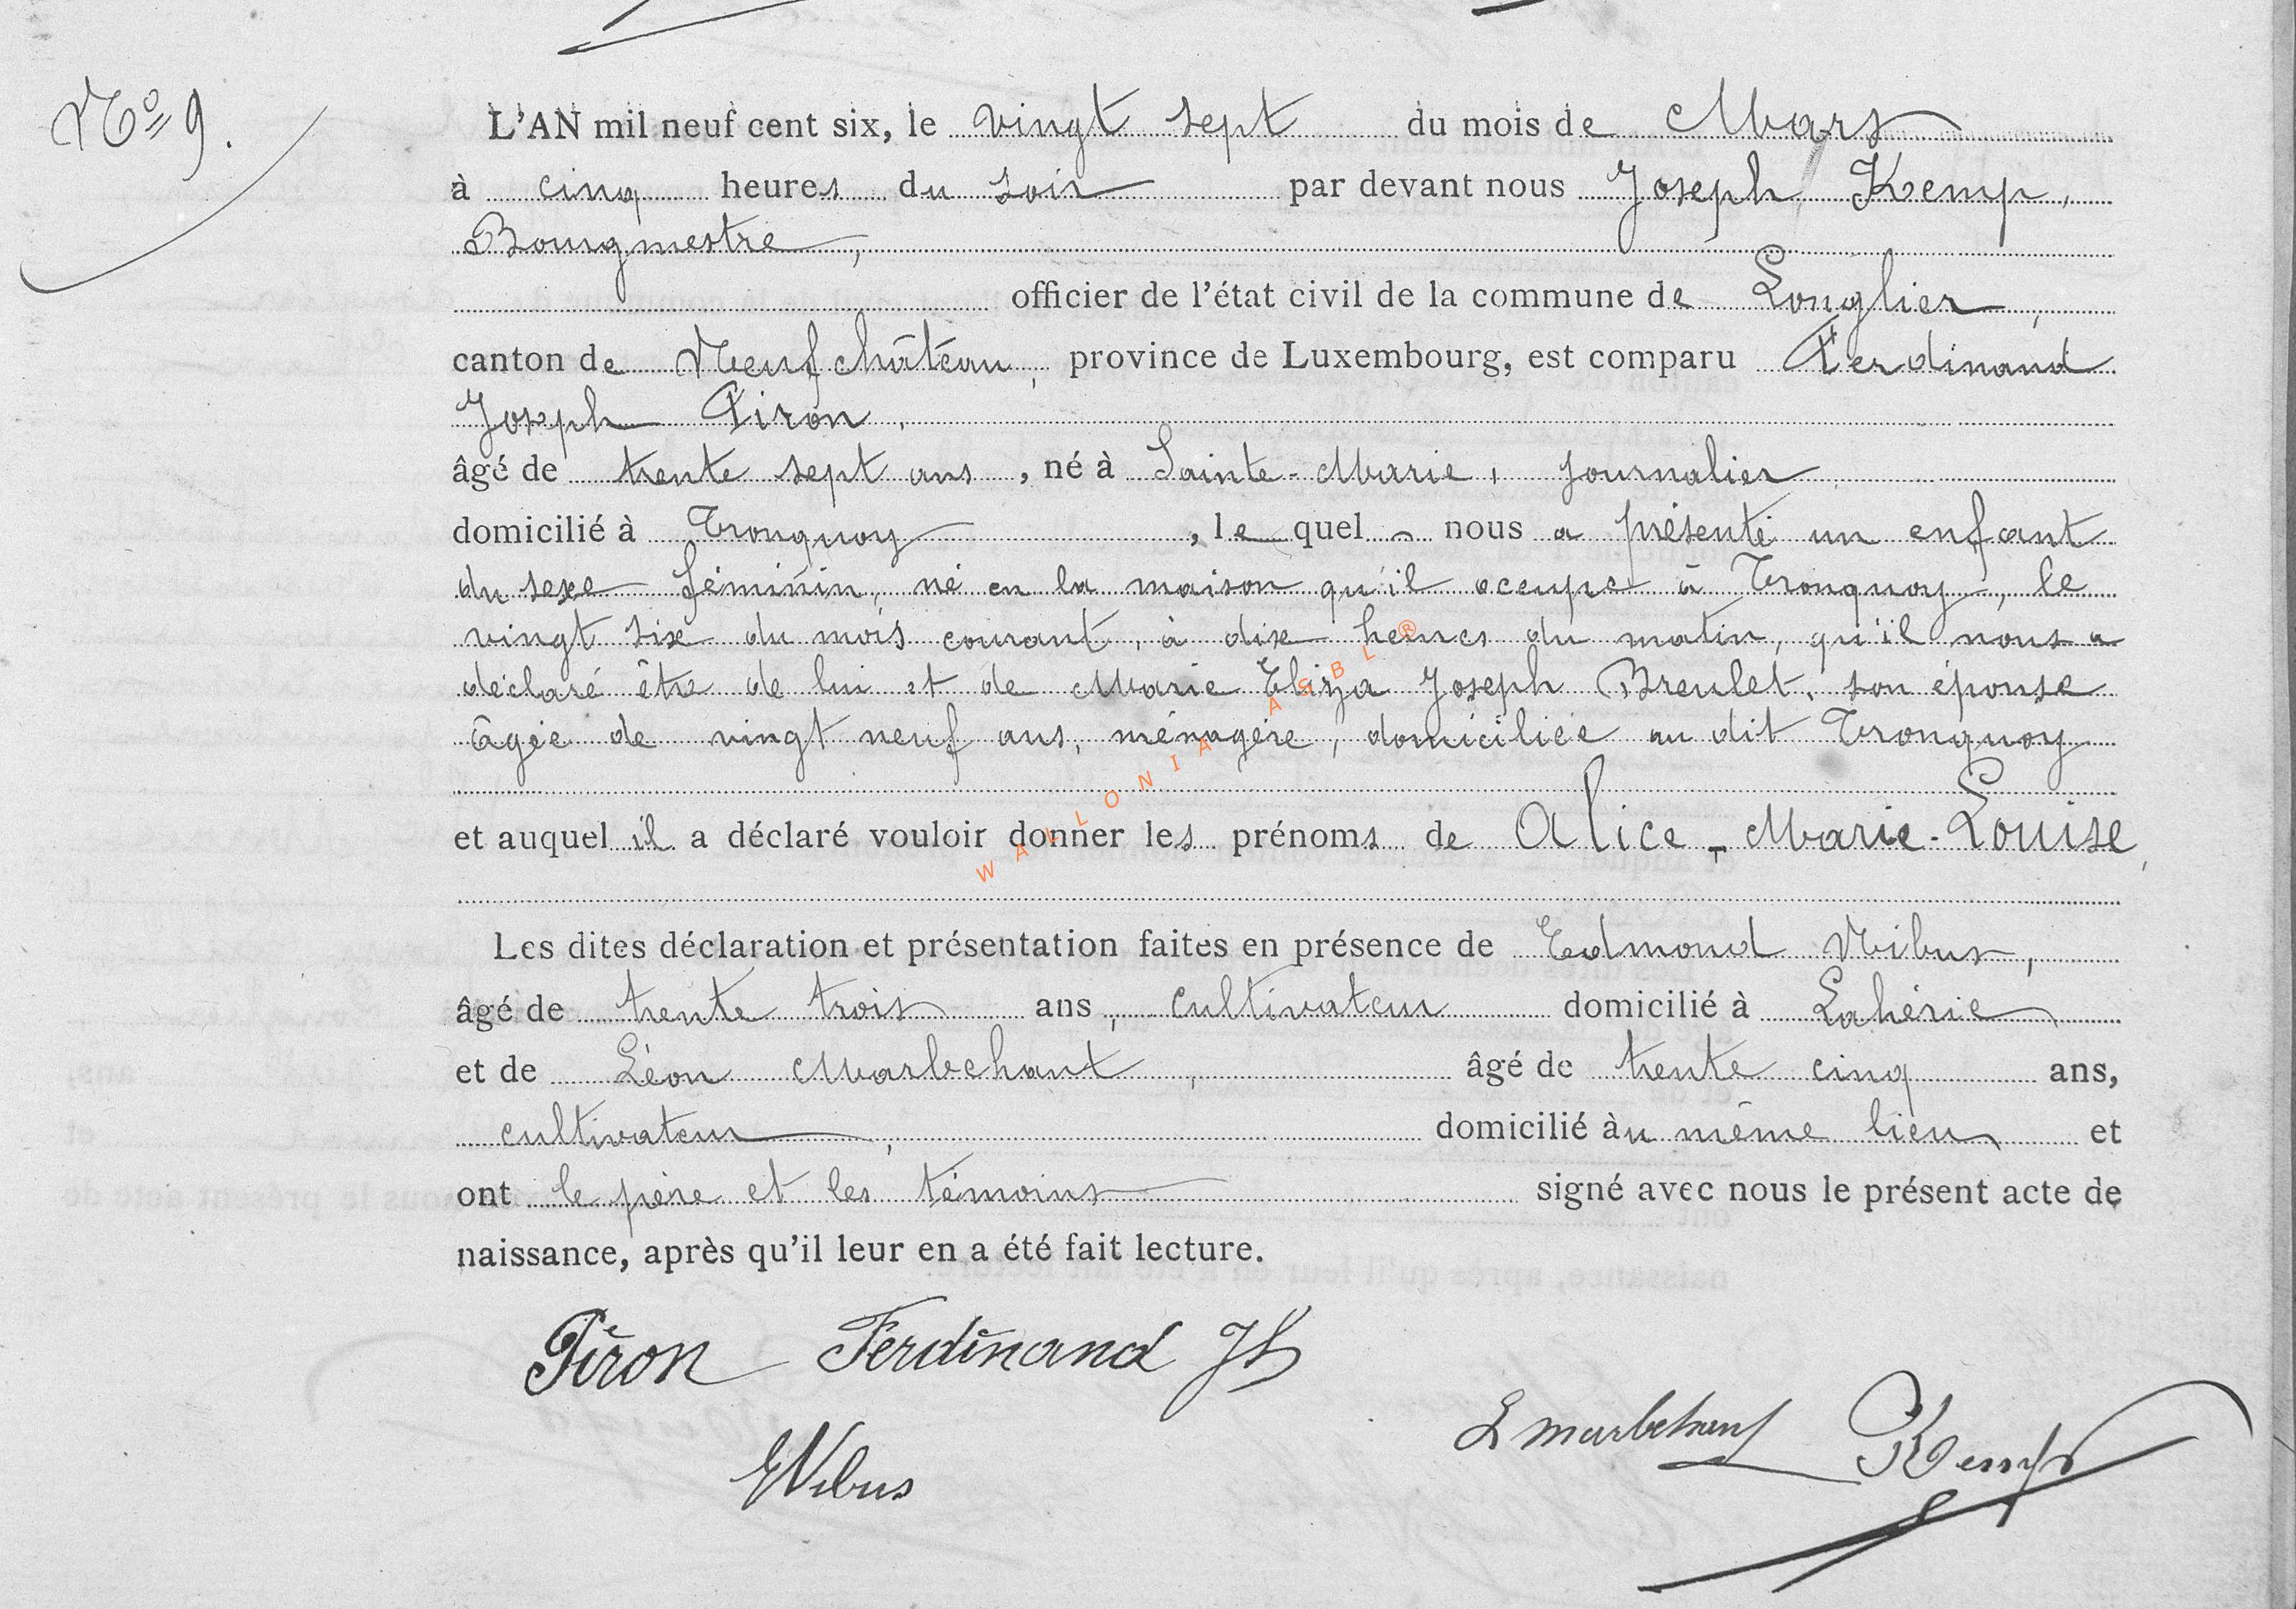 Nº 9.
L'AN mil neuf cent six, le vingt sept du mois de Mars
à cinq heures du soir par devant nous Joseph Kemp,
Bourgmestre,
officier de l'état civil de la commune de Longlier,
canton de Neufchâteau, province de Luxembourg, est comparu Ferdinand
Joseph Piron,
âgé de trente sept ans, né à Sainte-Marie, journalier
domicilié à Tronquoy, le quel nous a présenté un enfant
du sexe féminin, né en la maison qu'il occupe à Tronquoy, le
vingt six du mois courant, à dix heures du matin, qu'il nous a
déclaré être de lui et de Marie Eliza Joseph Breulet, son épouse
âgée de vingt neuf ans, ménagère, domiciliée au dit Tronquoy
et auquel il a déclaré vouloir donner les prénoms de Alice-Marie-Louise,
WALLONIA ASBL ®
Les dites déclaration et présentation faites en présence de Edmond Nibus,
âgé de trente trois ans, cultivateur domicilié à Lahérie
et de Léon Marbehant, âgé de trente cinq ans,
cultivateur, domicilié àu même lieu et
ont le père et les témoins signé avec nous le présent acte de
naissance, après qu'il leur en a été fait lecture.
Piron Ferdinand Jh
L Marbehant Kemp
E Nibus